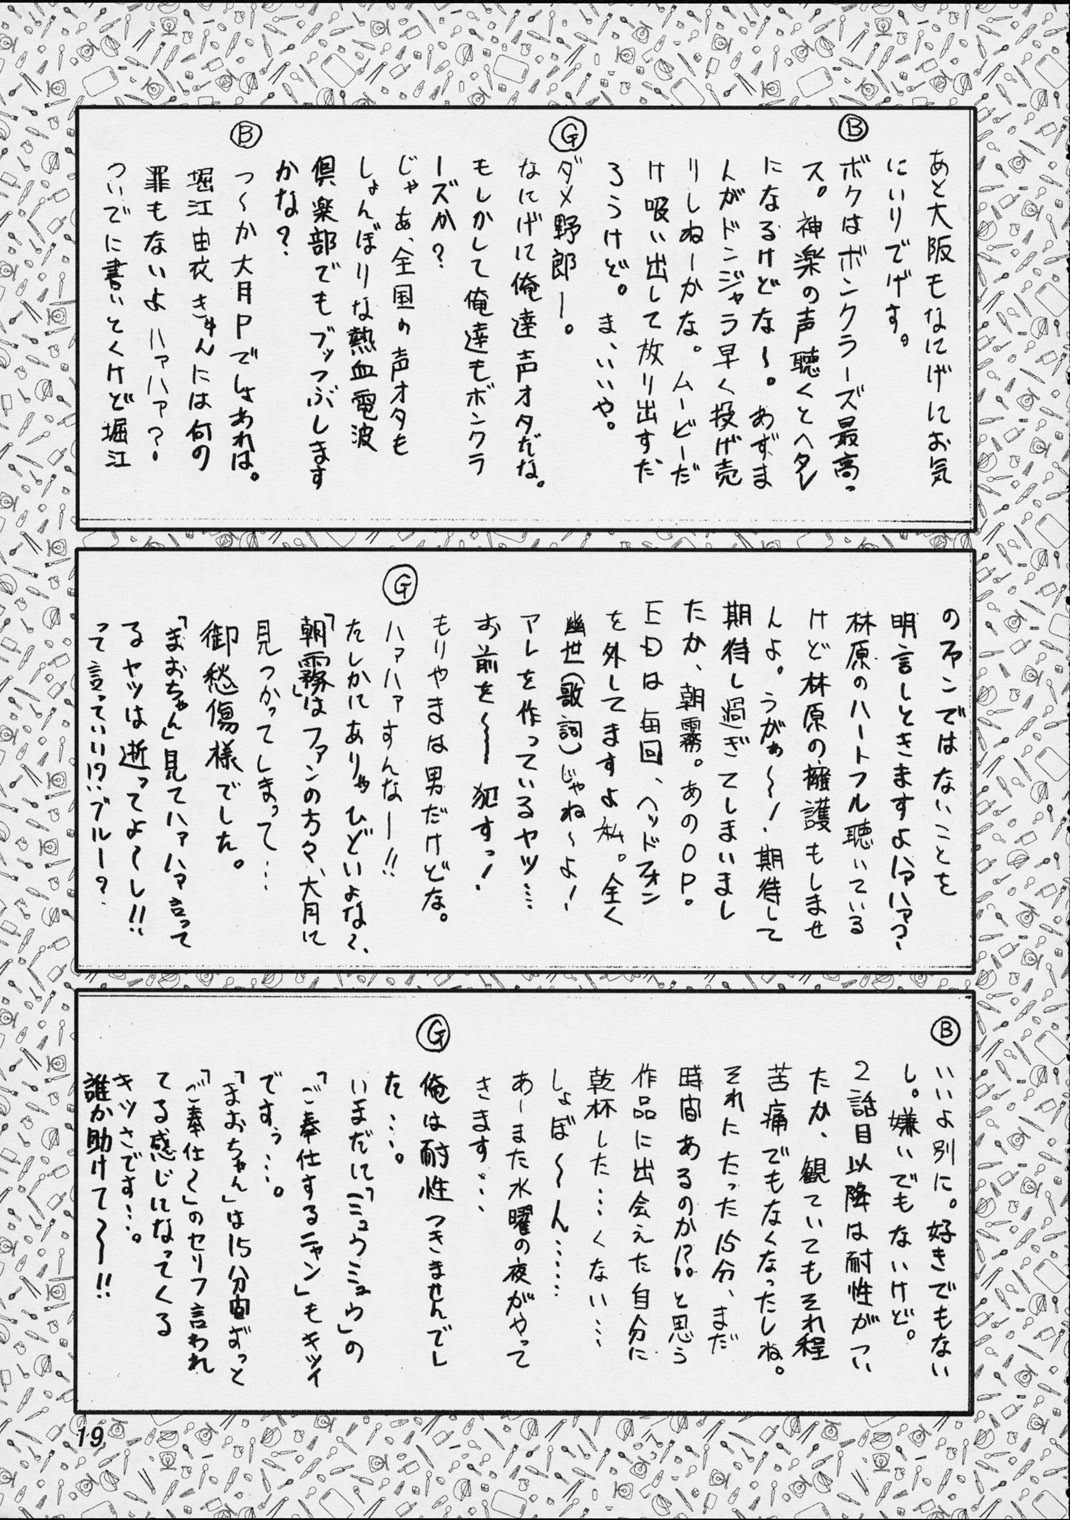 あと大阪もなにげにお気
にいりでげす。
Ⓑ
ボクはボンクラーズ最高っ
ス。神楽の声聴くとヘタレ
になるけどな〜。あずま
んがドンジャラ早く投げ売
りしねーかな。ムービーだ
け吸い出して放り出すだ
ろうけど。ま、いいや。
Ⓖ
ダメ野郎ー。
なにげに俺達声オタだな。
もしかして俺達もボンクラ
ーズか？
じゃあ、全国の声オタも
しょんぼりな熱血電波
倶楽部でもブッつぶします
かな？
Ⓑ
つ〜か大月Pでしょあれは。
堀江由衣きゃんには何の
罪もないよハァハァ？
ついでに書いとくけど堀江
のファンではないことを
明言しときますよハァハァ？
林原のハートフル聴いている
けど林原の擁護もしませ
んよ。うがぁ〜！期待して
期待し過ぎてしまいまし
たか、朝霧。あのOP。
EDは毎回、ヘッドフォン
を外してますよ私。全く
幽世(歌詞)じゃね〜よ！
アレを作っているヤツ…
お前を〜〜犯すっ！
もりやまは男だけどな。
Ⓖ
ハァハァすんなー!!
たしかにありゃひどいよな〜、
「朝霧」はファンの方々、大月に
見つかってしまって…
御愁傷様でした。
「まおちゃん」見てハァハァ言って
るヤツは逝ってよ〜し!!
って言っていい!?ブルー？
Ⓑ
いいよ別に。好きでもない
し。嫌いでもないけど。
2話目以降は耐性がつい
たか、観ていてもそれ程
苦痛でもなくなったしね。
それにたった15分、まだ
時間あるのか!?と思う
作品に出会えた自分に
乾杯した…くない…
しょぼ〜ん……
あーまた水曜の夜がやって
きます…
Ⓖ
俺は耐性つきませんでし
た…。
いまだに「ミュウミュウ」の
「ご奉仕するニャン」もキツイ
ですぅ…。
「まおちゃん」は15分間ずっと
「ご奉仕〜」のセリフ言われ
てる感じになってくる
キツさです…。
誰か助けて〜〜!!
19